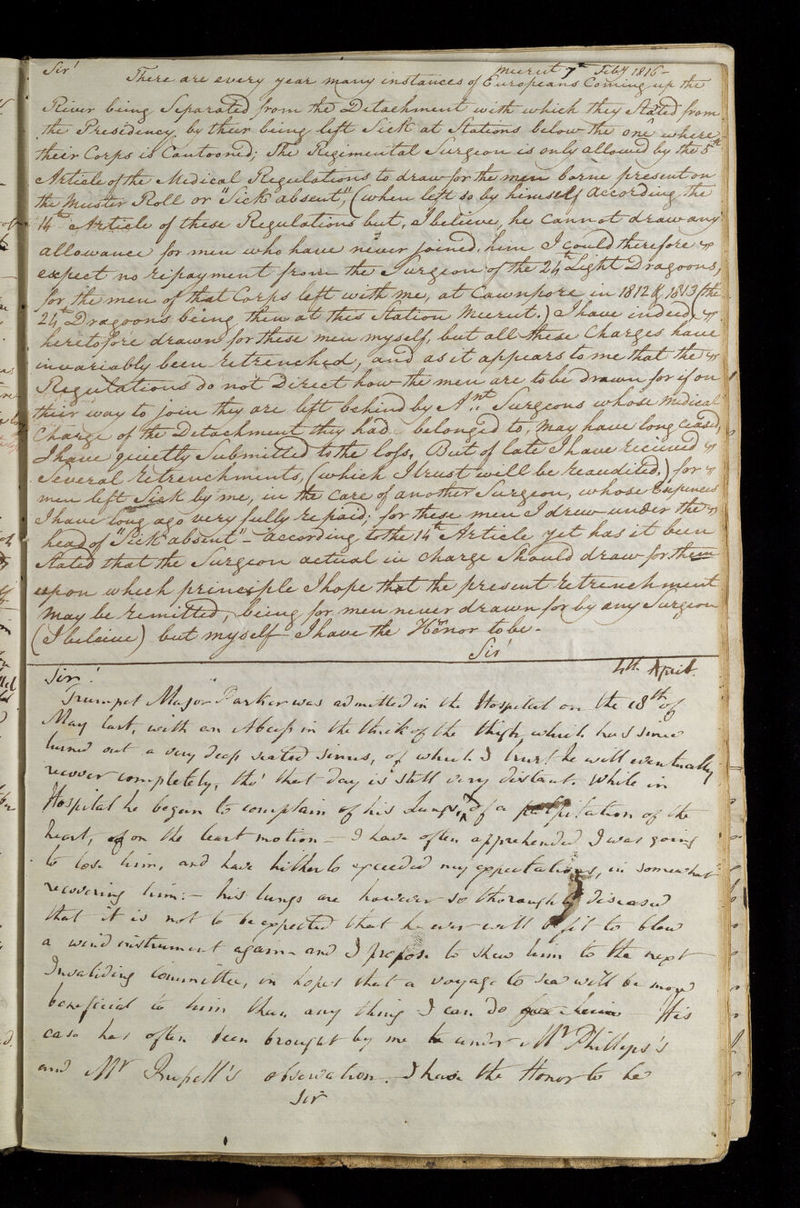 Sir! Meerut 7th Feby 1816 -
There are every year many instances of Europeans Coming up the
River being Separated from the Detachment with which they Started from
the Presidency, by their being left Sick at Stations below the one where
their Corps is Cantooned; The Regimental Surgeon is only allowed by the 5th
Article of the Medical Regulations to draw for the men borne present on
the Muster Roll or "Sick absent", (when left so by himself according the
14th Article of these Regulations but, I believe, he cannot draw any
allowance for men who have never joined him I could therefore
expect no repayment from the Surgeon of the 24th Light Dragoons,
for the men of that Corps left with me, at Cawnpore in 1812 & 1813 (the
24th Dragoons being then at this Station Meerut.) I have indeed
heretofore drawn for these men myself, but all these Charges have
invariably been retrenched, and as it appears to me that the
Regulations do not Direct how the men are to be drawn for if on
their way to join they are left behind by Ant. Surgeons whose Medical
Charge of the Detachment they had belonged to, may have long ceased,
I have quietly Submitted to the loss, But of late I have recieved
Several retrenchments, (which I trust will be reaudited.) for
men left Sick by me, in the care of another Surgeon, whose Expences
I have long ago very fully repaid, for these men I drew under the
head of "Sick absent" - according to the 14th Article yet has it been
Stated that the Surgeon actual in charge Should draw for them
upon which principle I hope that the present retrenchment
may be remitted, being for men never drawn for by any Surgeon
(I beleive) but myself I have the Honor to be -
Sir
4th April.
Sir!
Trumpet Major Parker was admitted in the Hospital on the 18th of
May last, with an Abcess in the thick of the thigh, which has since
turned out a very deep seated sinus, of which I trust he will eventually
recover completely, tho' that day is still very distant. While in
Hospital he began to complain of his Lungs, & of a palpitation of the
heart, on the least motion - I have often apprehended I was going
to lose him, and have hitherto exceeded my expectations, in somewhat
recovering him: - his lungs are however so thoroughly diseased
that it is not to be expected that he ever will be fit to blow
a wind instrument again - and I propose to shew him to the next
Invaliding Committee, in hopes that a voyage to sea will be more
beneficial to him than any thing I can do His
case has often been brought by me under Mr Phillips's
and Mr Russell's observation. I have the Honor to be
Sir